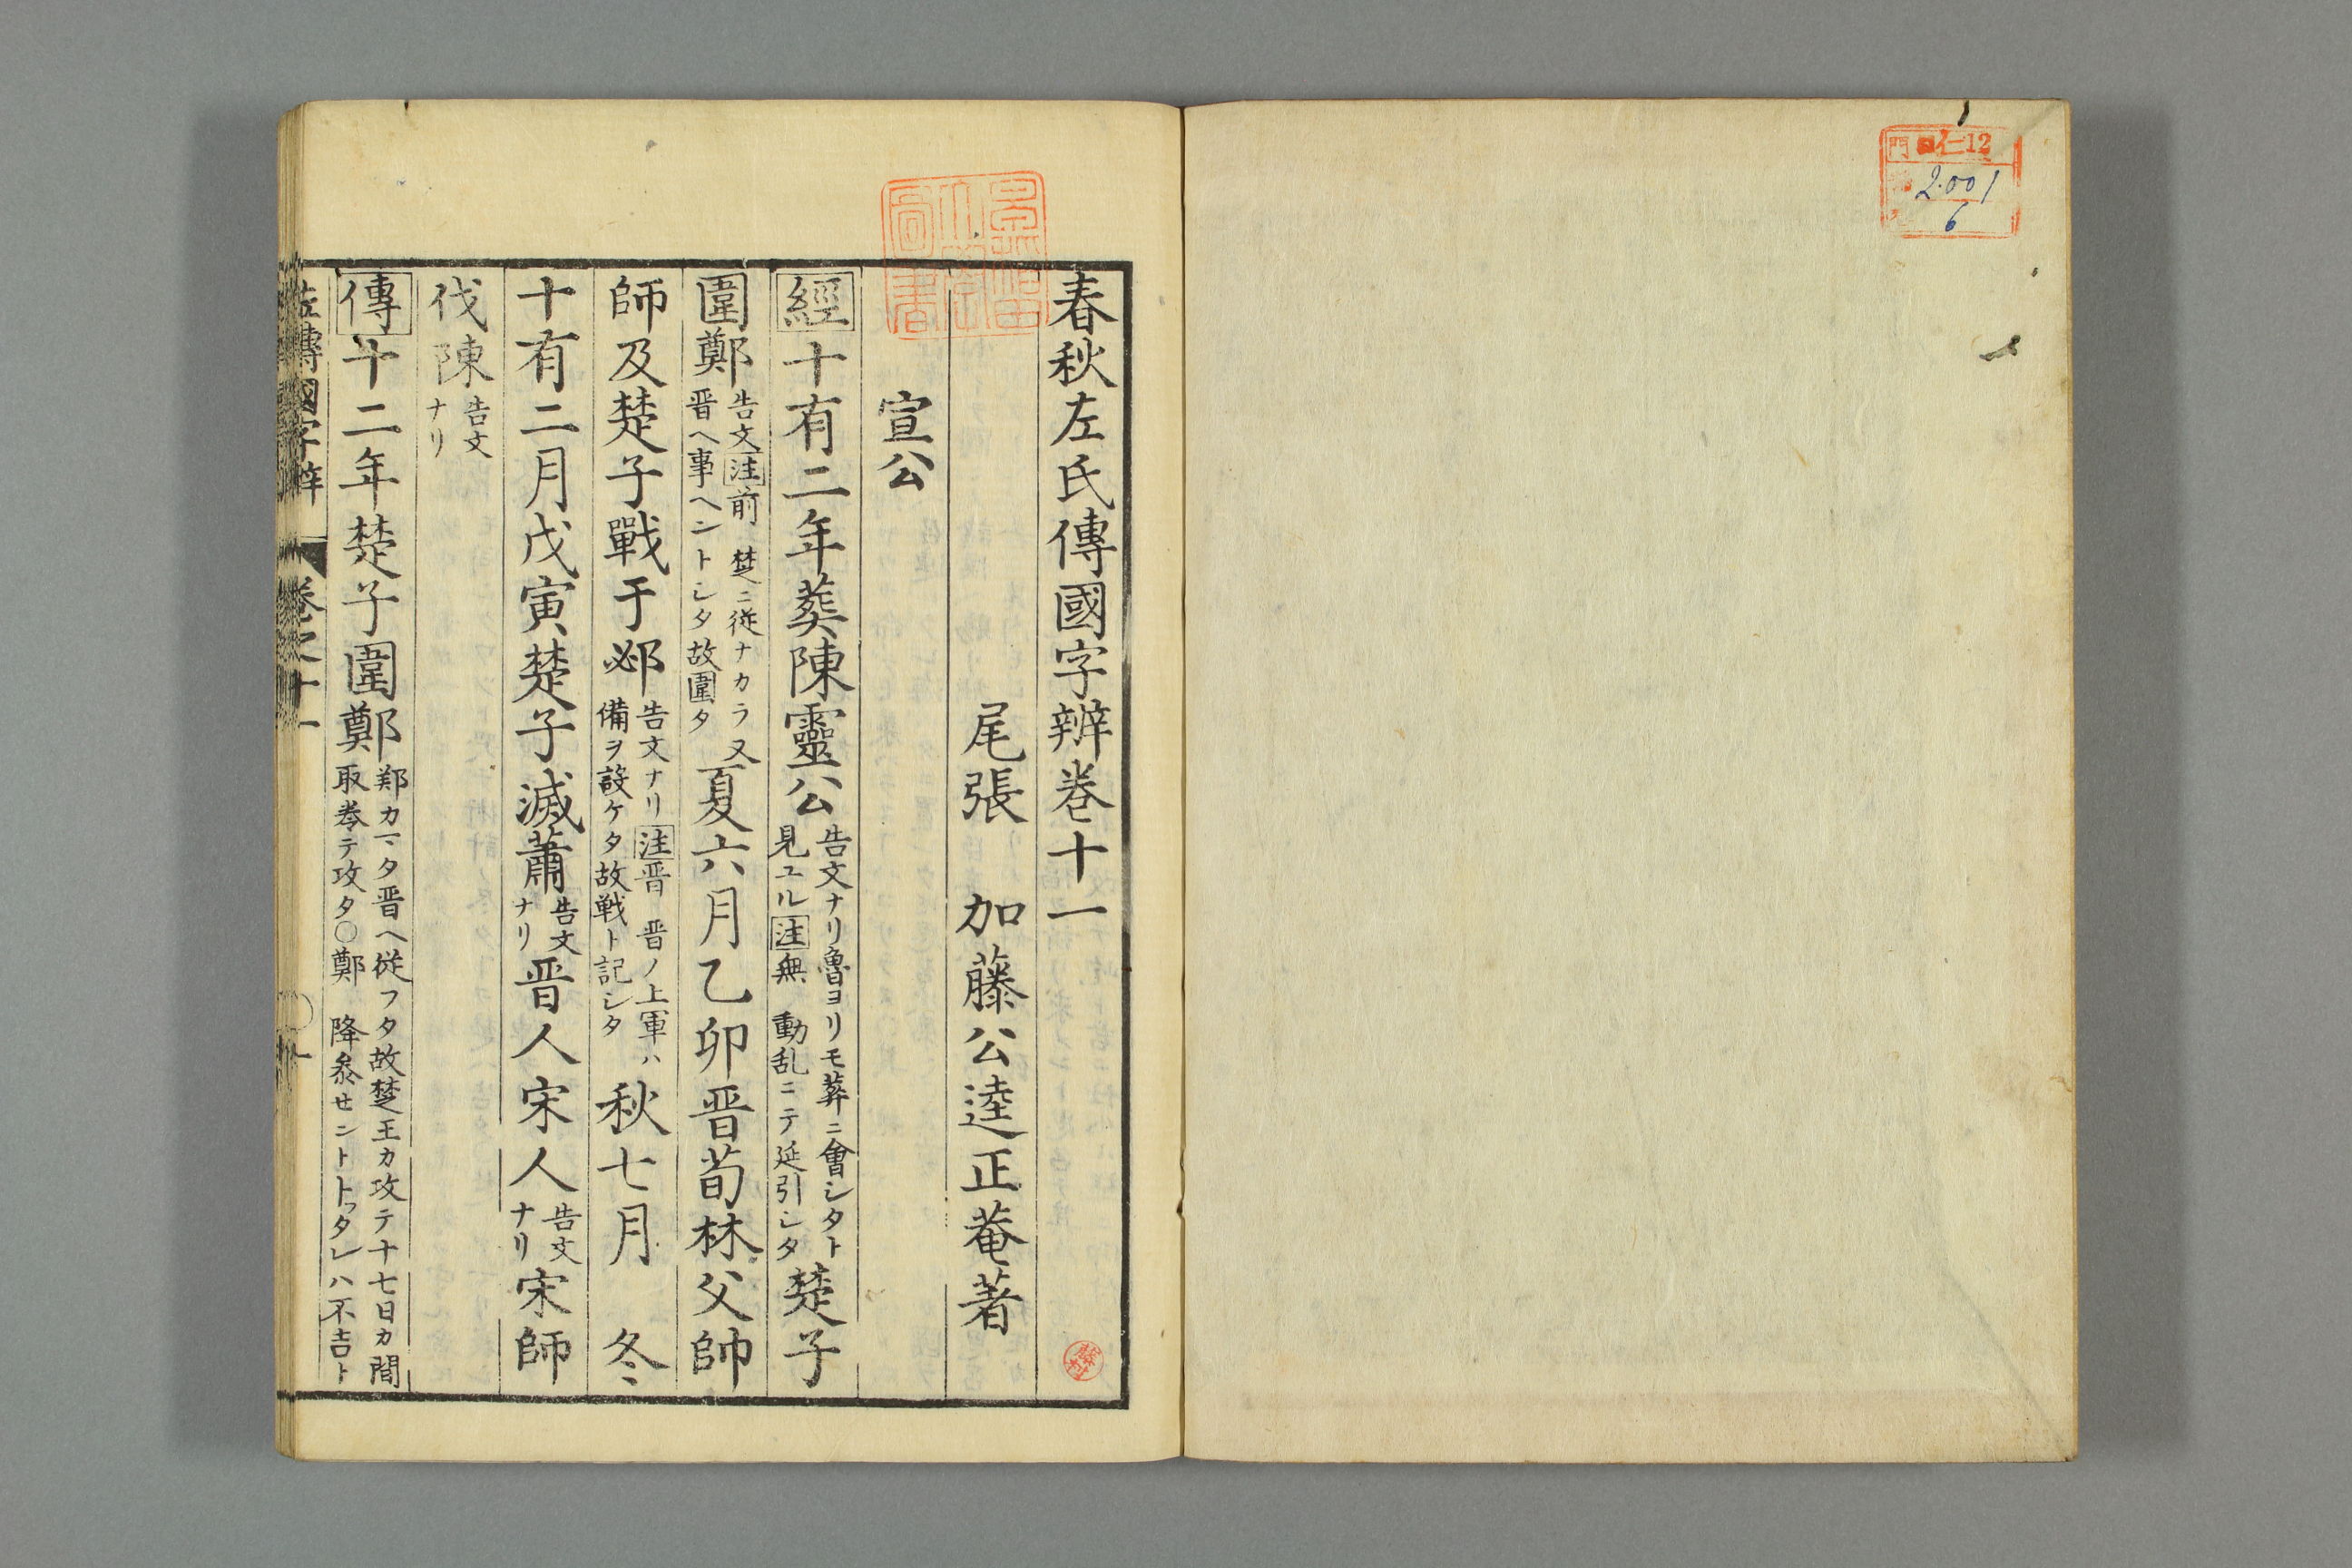 門 仁12
2.001
6
春秋左氏傳國字辨巻十一
尾張 加藤公逵正菴著
宣公
經十有二年葬陳靈公告文ナリ魯ヨリモ葬ニ會シタト見ユル注無 動乱ニテ延引シタ楚子
圍鄭告文注前 楚ニ從ナカラ又晋ヘ事ヘントシタ故圍タ夏六月乙卯晋荀林父帥
師及楚子戰于邲告文ナリ注晋 晋ノ上軍ハ備ヲ設ケタ故戦ト記シタ秋七月 冬
十有二月戊寅楚子滅蕭告文ナリ晋人宋人告文ナリ宋師
伐陳告文ナリ
傳十二年楚子圍鄭鄭カマタ晋ヘ從フタ故楚王カ攻テ十七日カ間取巻テ攻タ〇鄭 降叅セントトッタレハ不吉ト
左傳國字辨 巻之十一